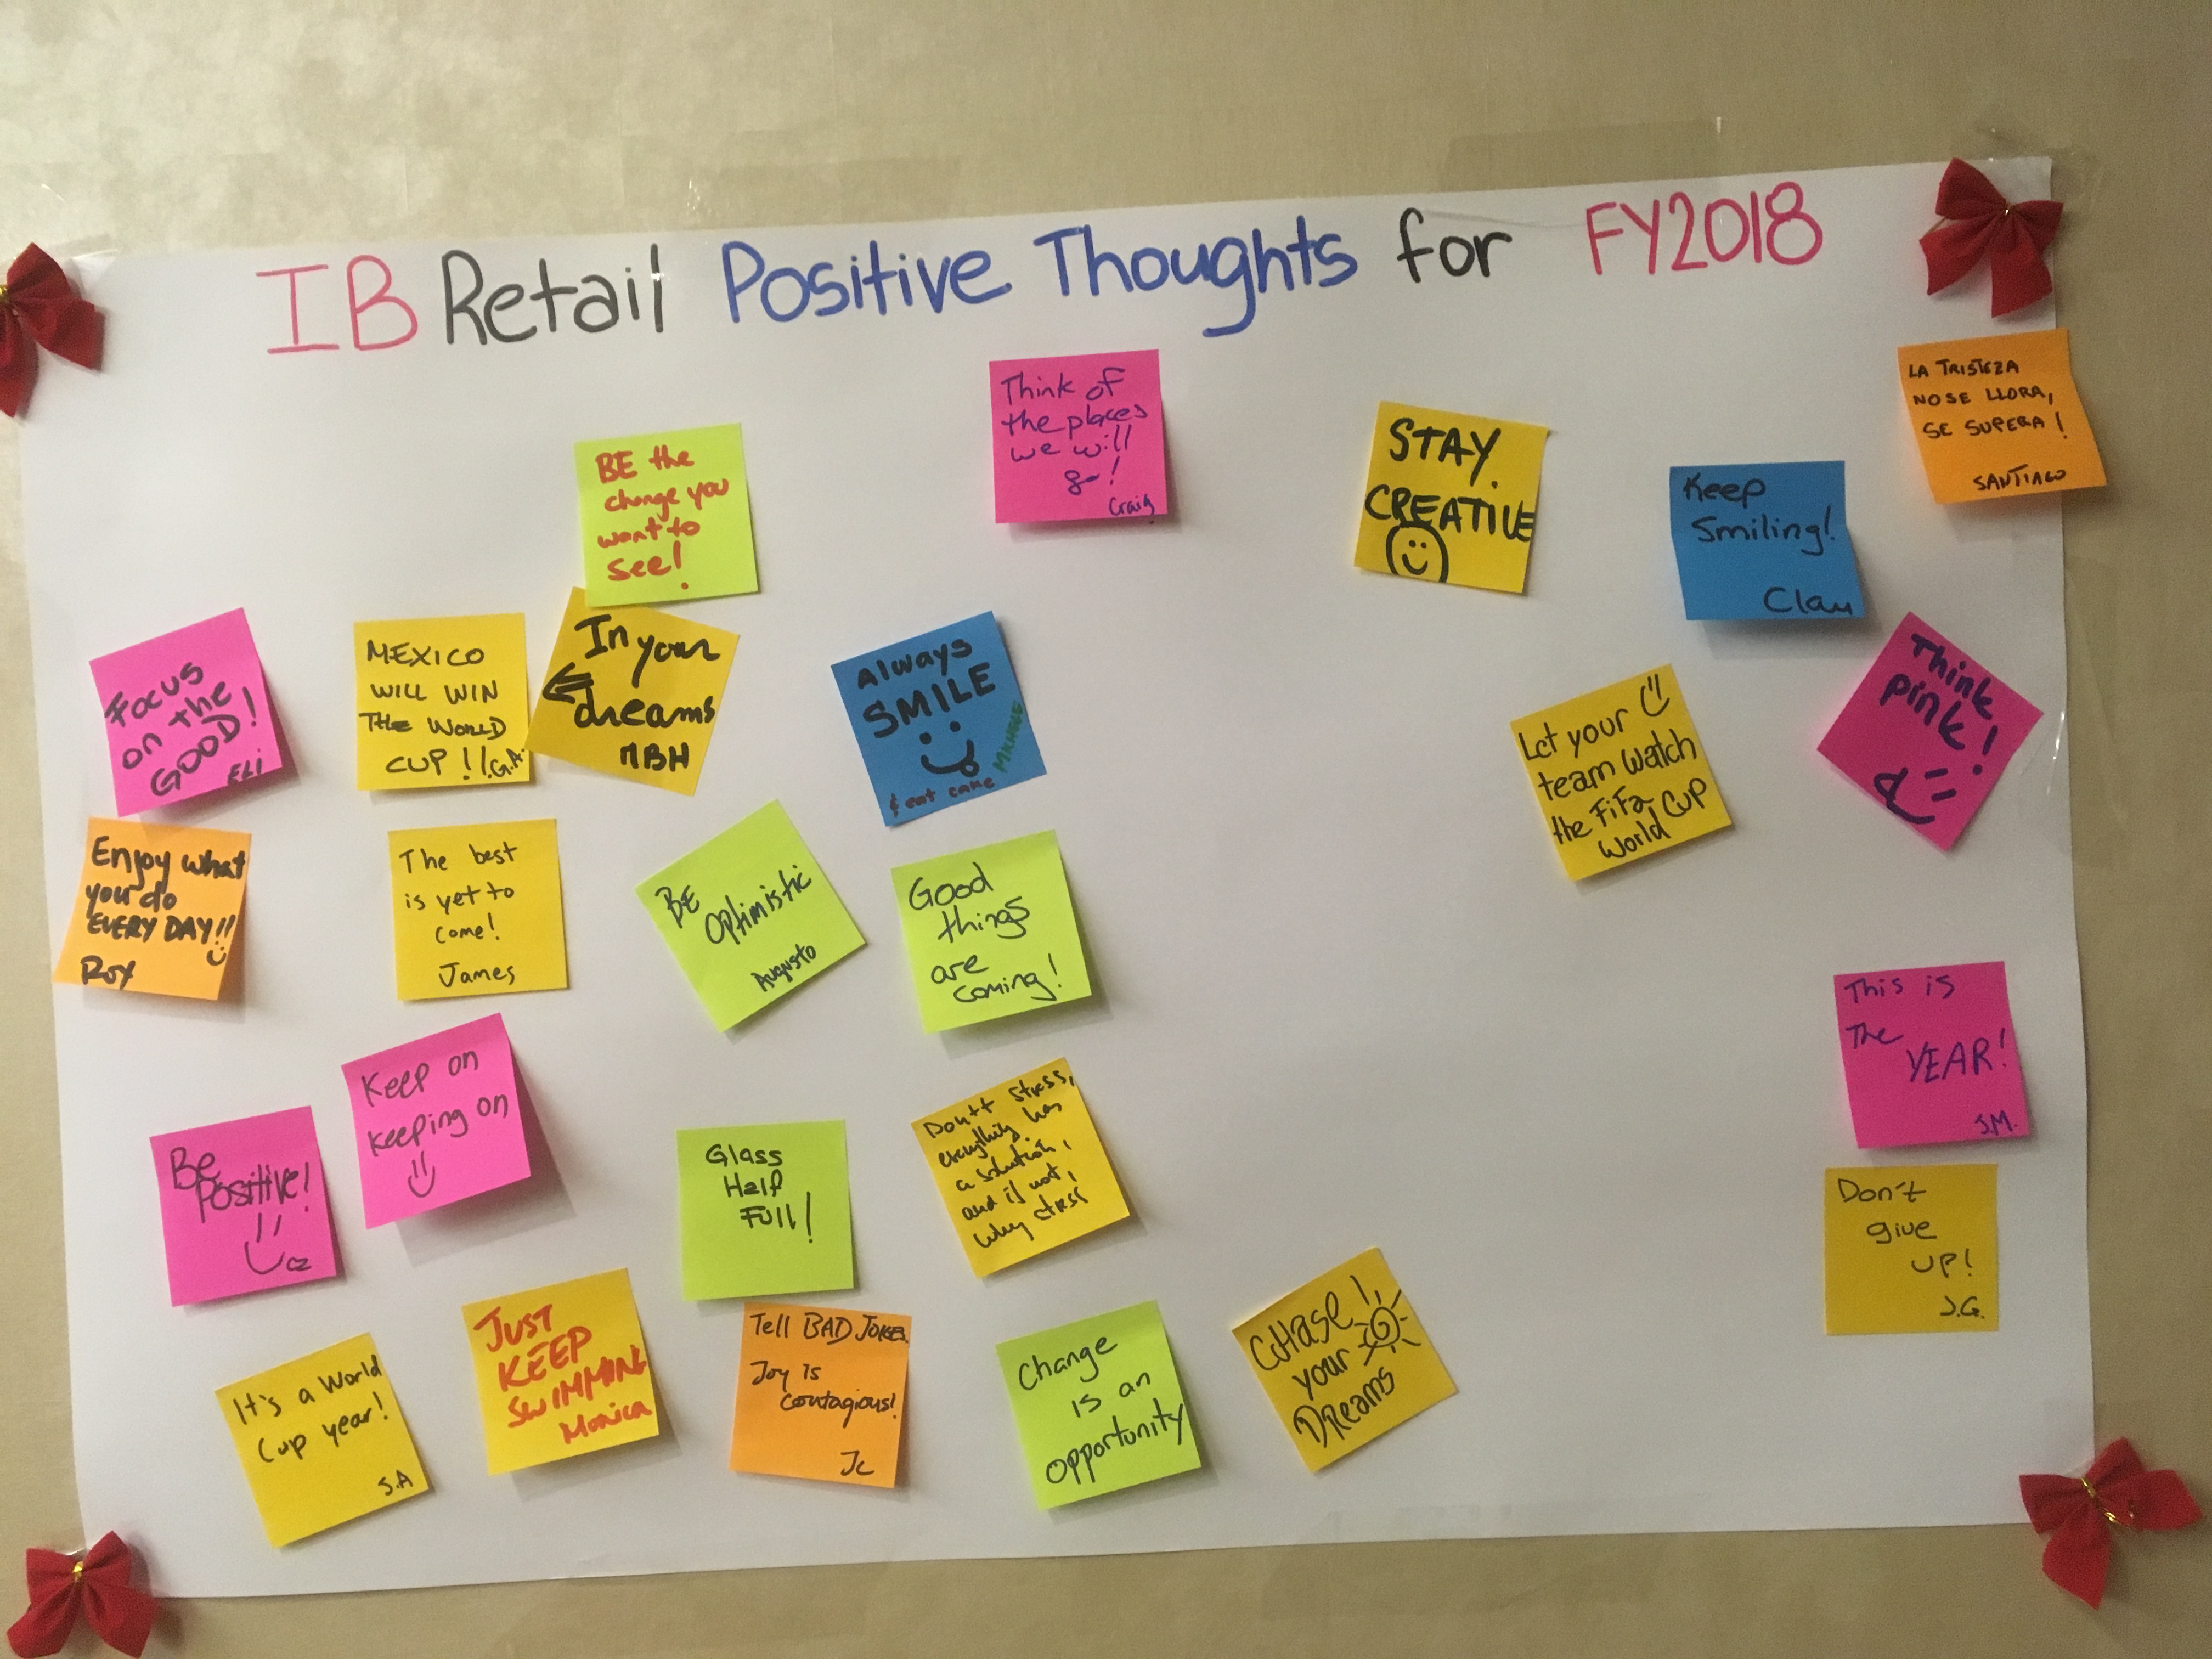 IB Retail Positive Thoughts for FY2018
Think of
the places
we will
go!
Craig
LA TRISTEZA
NO SE LLORA,
SE SUPERA!
SANTIAGO
BE the
change you
want to
see!
STAY
CREATIVE
Keep
Smiling!
Clau
Focus
on the
GOOD!
ELi
MEXICO
WILL WIN
THE WORLD
CUP!! G.A.
In your
dreams
MBH
Always
SMILE
& eat cake
MICHELE
Let your
team watch
the FiFa
World CUP
Think
pink!
Enjoy what
you do
EVERY DAY!!
Roy
The best
is yet to
come!
James
BE
Optimistic
Augusto
Good
things
are
coming!
This is
The
YEAR!
J.M.
Be
Positive!
CZ
Keep on
keeping on
Glass
Half
Full!
Don't stress,
everything has
a solution,
and if not,
why stress
Don't
give
UP!
J.G.
It's a World
Cup year!
S.A
JUST
KEEP
SWIMMING
Monica
Tell BAD JOKES.
Joy is
contagious!
JC
Change
is an
opportunity
CHase
your
Dreams